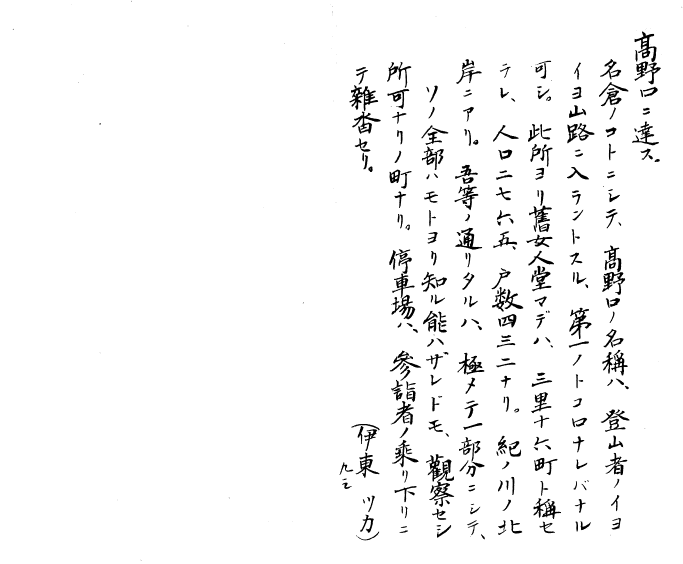 高野口ニ達ス。
名倉ノコトニシテ、高野口ノ名稱ハ、登山者ノイヨ
イヨ山路ニ入ラントスル、第一ノトコロナレバナル
可シ。此所ヨリ舊女人堂マデハ、三里十六町ト稱セ
ラレ、人口二七六五、戸数四三二ナリ。紀ノ川ノ北
岸ニアリ。吾等ノ通リタルハ、極メテ一部分ニシテ、
ソノ全部ハモトヨリ知ル能ハザレドモ、觀察セシ
所可ナリノ町ナリ。停車場ハ、參詣者ノ乗リ下リニ
テ雜沓セリ。
(伊東 ツカ)